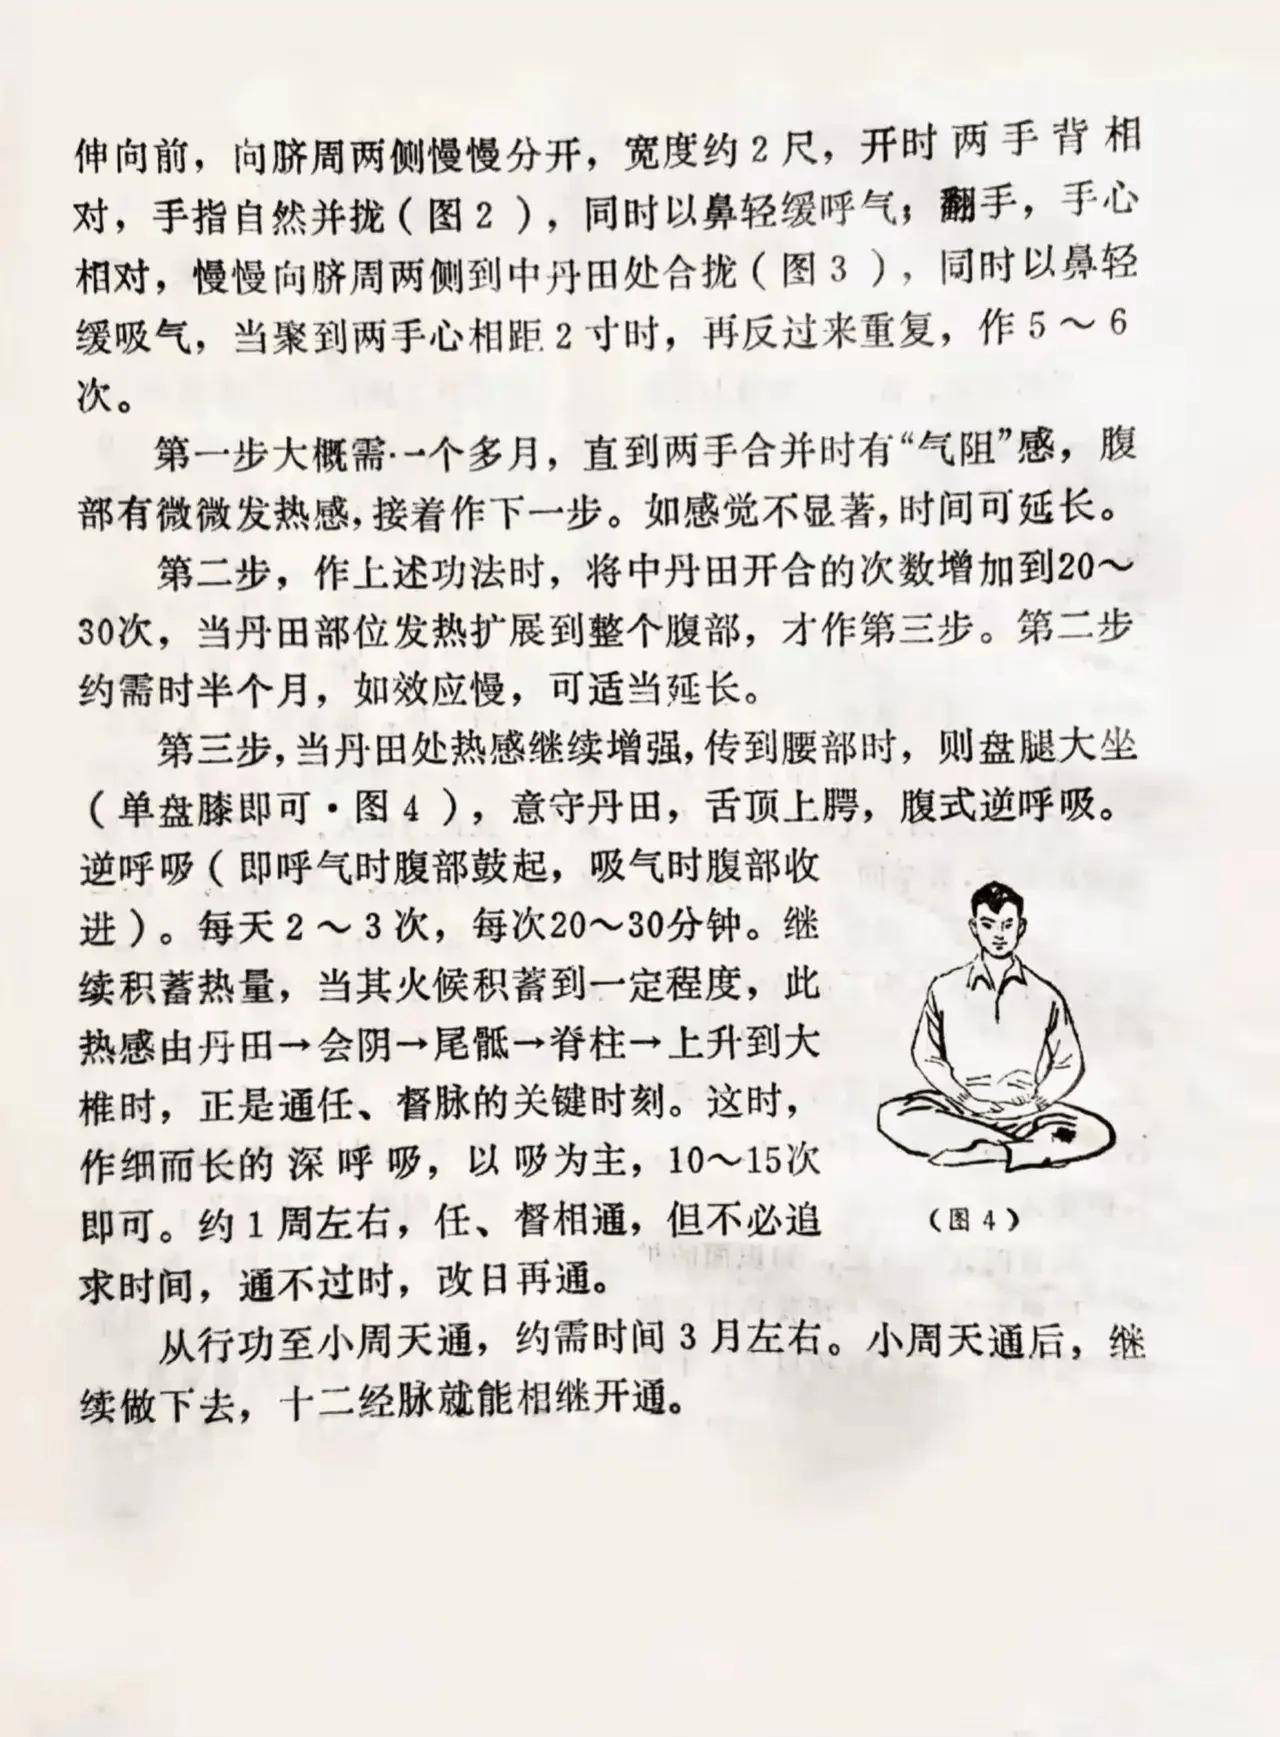 伸向前，向脐周两侧慢慢分开，宽度约2尺，开时两手背相
对，手指自然并拢（图2），同时以鼻轻缓呼气；翻手，手心
相对，慢慢向脐周两侧到中丹田处合拢（图3），同时以鼻轻
缓吸气，当聚到两手心相距2寸时，再反过来重复，作5～6
次。
第一步大概需一个多月，直到两手合并时有“气阻”感，腹
部有微微发热感，接着作下一步。如感觉不显著，时间可延长。
第二步，作上述功法时，将中丹田开合的次数增加到20～
30次，当丹田部位发热扩展到整个腹部，才作第三步。第二步
约需时半个月，如效应慢，可适当延长。
第三步，当丹田处热感继续增强，传到腰部时，则盘腿大坐
（单盘膝即可·图4），意守丹田，舌顶上腭，腹式逆呼吸。
逆呼吸（即呼气时腹部鼓起，吸气时腹部收
进）。每天2～3次，每次20～30分钟。继
续积蓄热量，当其火候积蓄到一定程度，此
热感由丹田→会阴→尾骶→脊柱→上升到大
椎时，正是通任、督脉的关键时刻。这时，
作细而长的深呼吸，以吸为主，10～15次
即可。约1周左右，任、督相通，但不必追
求时间，通不过时，改日再通。
（图4）
从行功至小周天通，约需时间3月左右。小周天通后，继
续做下去，十二经脉就能相继开通。